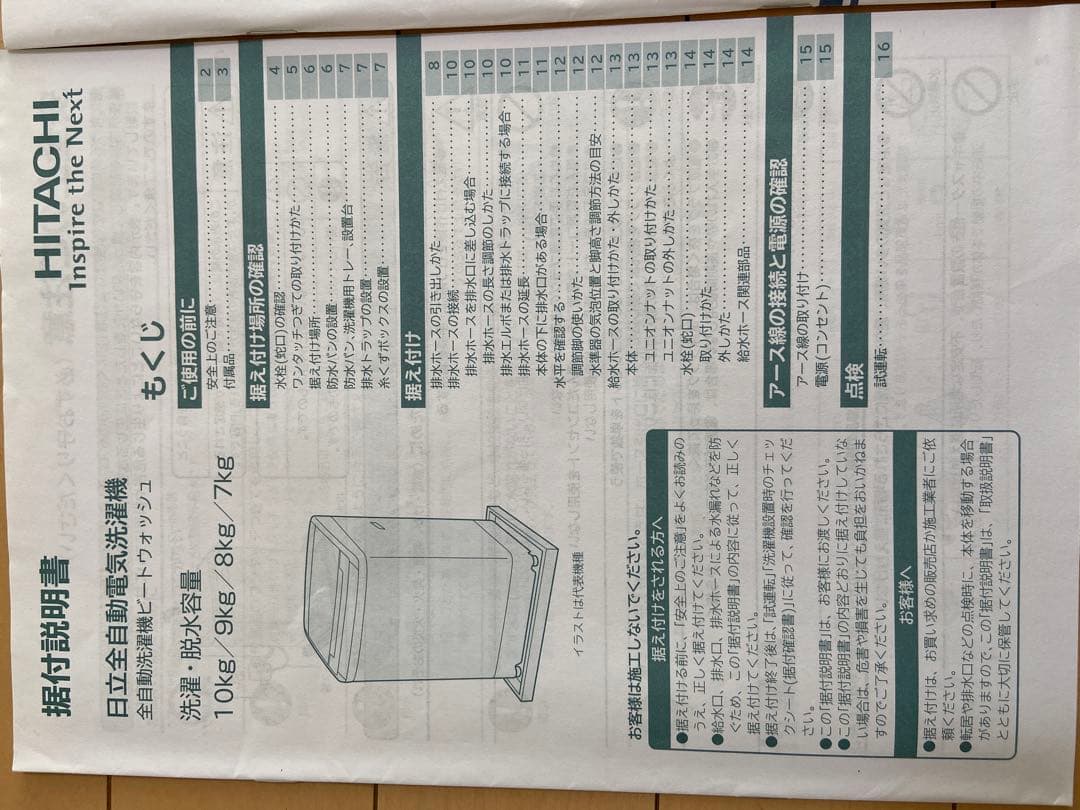 据付説明書
日立全自動電気洗濯機
全自動洗濯機ビートウォッシュ
洗濯・脱水容量
10kg/9kg/8kg/7kg
イラストは代表機種
お客様は施工しないでください。
据え付けをされる方へ
●据え付ける前に、「安全上のご注意」をよくお読みの
うえ、正しく据え付けてください。
●給水口、排水口、排水ホースによる水漏れなどを防
ぐため、この「据付説明書」の内容に従って、正しく
据え付けてください。
●据え付け終了後は、「試運転」「洗濯機設置時のチェッ
クシート(据付確認書)」に従って、確認を行ってくだ
さい。
●この「据付説明書」は、お客様にお渡しください。
●この「据付説明書」の内容どおりに据え付けしていな
い場合は、危害や損害を生じても負担をおいかねま
すのでご了承ください。
お客様へ
●据え付けは、お買い求めの販売店か施工業者にご依
頼ください。
●転居や排水口などの点検時に、本体を移動する場合
がありますので、この「据付説明書」は、「取扱説明書」
とともに大切に保管してください。
HITACHI
Inspire the Next
もくじ
ご使用の前に
安全上のご注意 2
付属品 3
据え付け場所の確認
水栓(蛇口)の確認 4
ワンタッチつぎての取り付けかた 5
据え付け場所 6
防水パンの設置 6
防水パン、洗濯機用トレー、設置台 7
排水トラップの設置 7
糸くずボックスの設置 7
据え付け
排水ホースの引き出しかた 8
排水ホースの接続 10
排水ホースを排水口に差し込む場合 10
排水ホースの長さ調節のしかた 10
排水エルボまたは排水トラップに接続する場合 10
排水ホースの延長 11
本体の下に排水口がある場合 11
水平を確認する 12
調節脚の使いかた 12
水準器の気泡位置と脚高さ調節方法の目安 12
給水ホースの取り付けかた・外しかた 13
本体 13
ユニオンナットの取り付けかた 13
ユニオンナットの外しかた 13
水栓(蛇口) 14
取り付けかた 14
外しかた 14
給水ホース関連部品 14
アース線の接続と電源の確認
アース線の取り付け 15
電源(コンセント) 15
点検
試運転 16